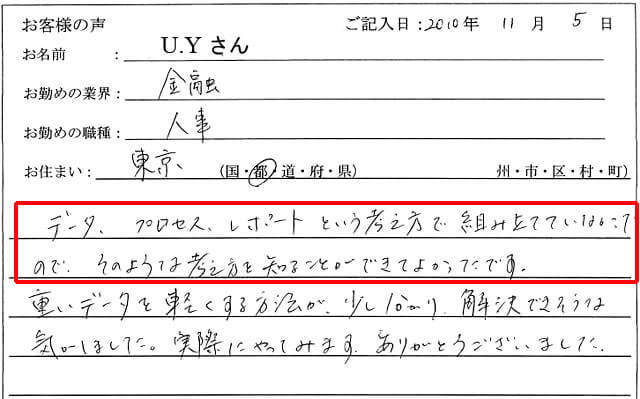 お客様の声 ご記入日：2010年 11月 5日
お名前 ： U.Yさん
お勤めの業界： 金融
お勤めの職種： 人事
お住まい： 東京 (国・都・道・府・県) 州・市・区・村・町)
データ、プロセス、レポートという考え方で組み立てていなかった
ので、そのような考え方を知ることができてよかったです。
重いデータを軽くする方法が、少し分かり、解決できそうな
気がしました。実際にやってみます。ありがとうございました。